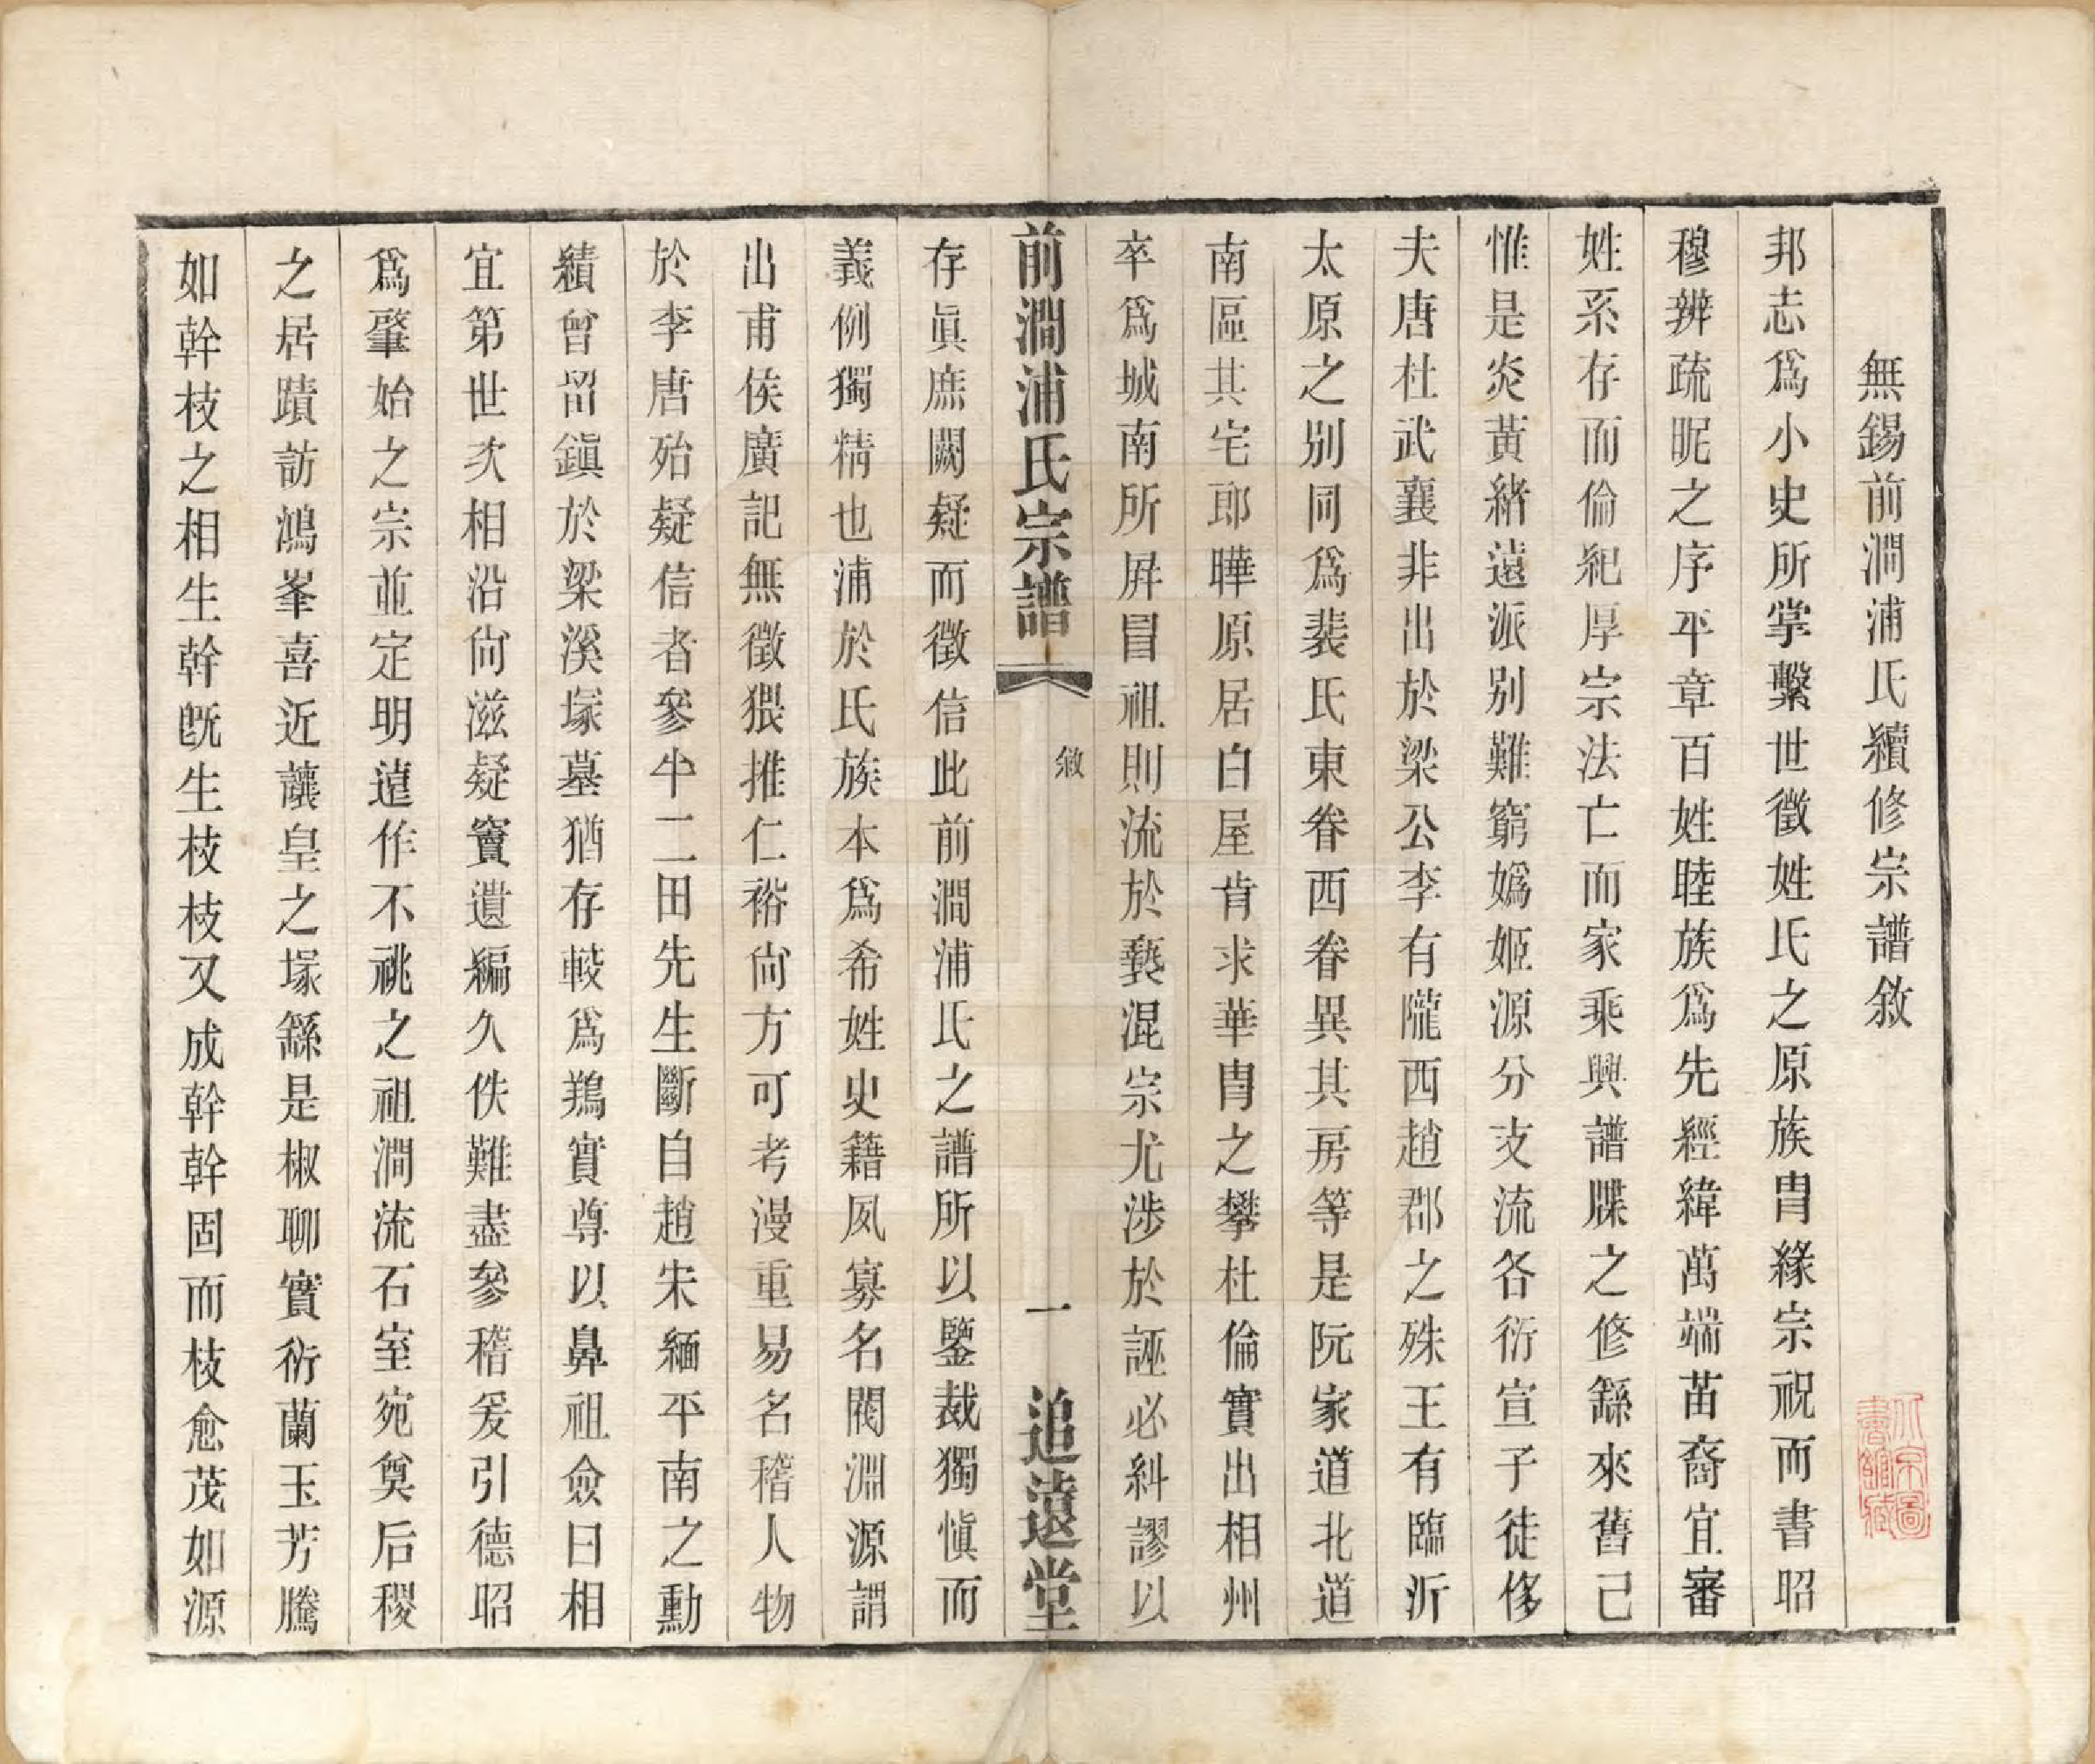 無錫前澗浦氏續修宗譜敘
邦志爲小史所掌繫世徵姓氏之原族胄緣宗祝而書昭
穆辨疏昵之序平章百姓睦族爲先經緯萬端苗裔宜審
姓系存而倫紀厚宗法亡而家乘興譜牒之修繇來舊已
惟是炎黃緒遠派别難窮嬀姬源分支流各衍宣子徒侈
夫唐杜武襄非出於梁公李有隴西趙郡之殊王有臨沂
太原之别同爲裴氏東眷西眷異其房等是阮家道北道
南區其宅郎曄原居白屋肯求華胄之攀杜倫實出相州
卒爲城南所屛冒祖則流於褻混宗尤涉於誣必糾謬以
前澗浦氏宗譜
敘
一
追遠堂
存眞庶闕疑而徵信此前澗浦氏之譜所以鑒裁獨愼而
義例獨精也浦於氏族本爲希姓史籍夙寡名閥淵源謂
出甫侯廣記無徵猥推仁裕尙方可考漫重易名稽人物
於李唐殆疑信者參半二田先生斷自趙宋緬平南之勳
績曾留鎭於梁溪塚墓猶存較爲鶪實尊以鼻祖僉曰相
宜第世次相沿尙滋疑竇遺編久佚難盡參稽爰引德昭
爲肇始之宗並定明遠作不祧之祖澗流石室宛奠后稷
之居蹟訪鴻峯喜近讓皇之塚繇是椒聊實衍蘭玉芳騰
如幹枝之相生幹旣生枝枝又成幹幹固而枝愈茂如源